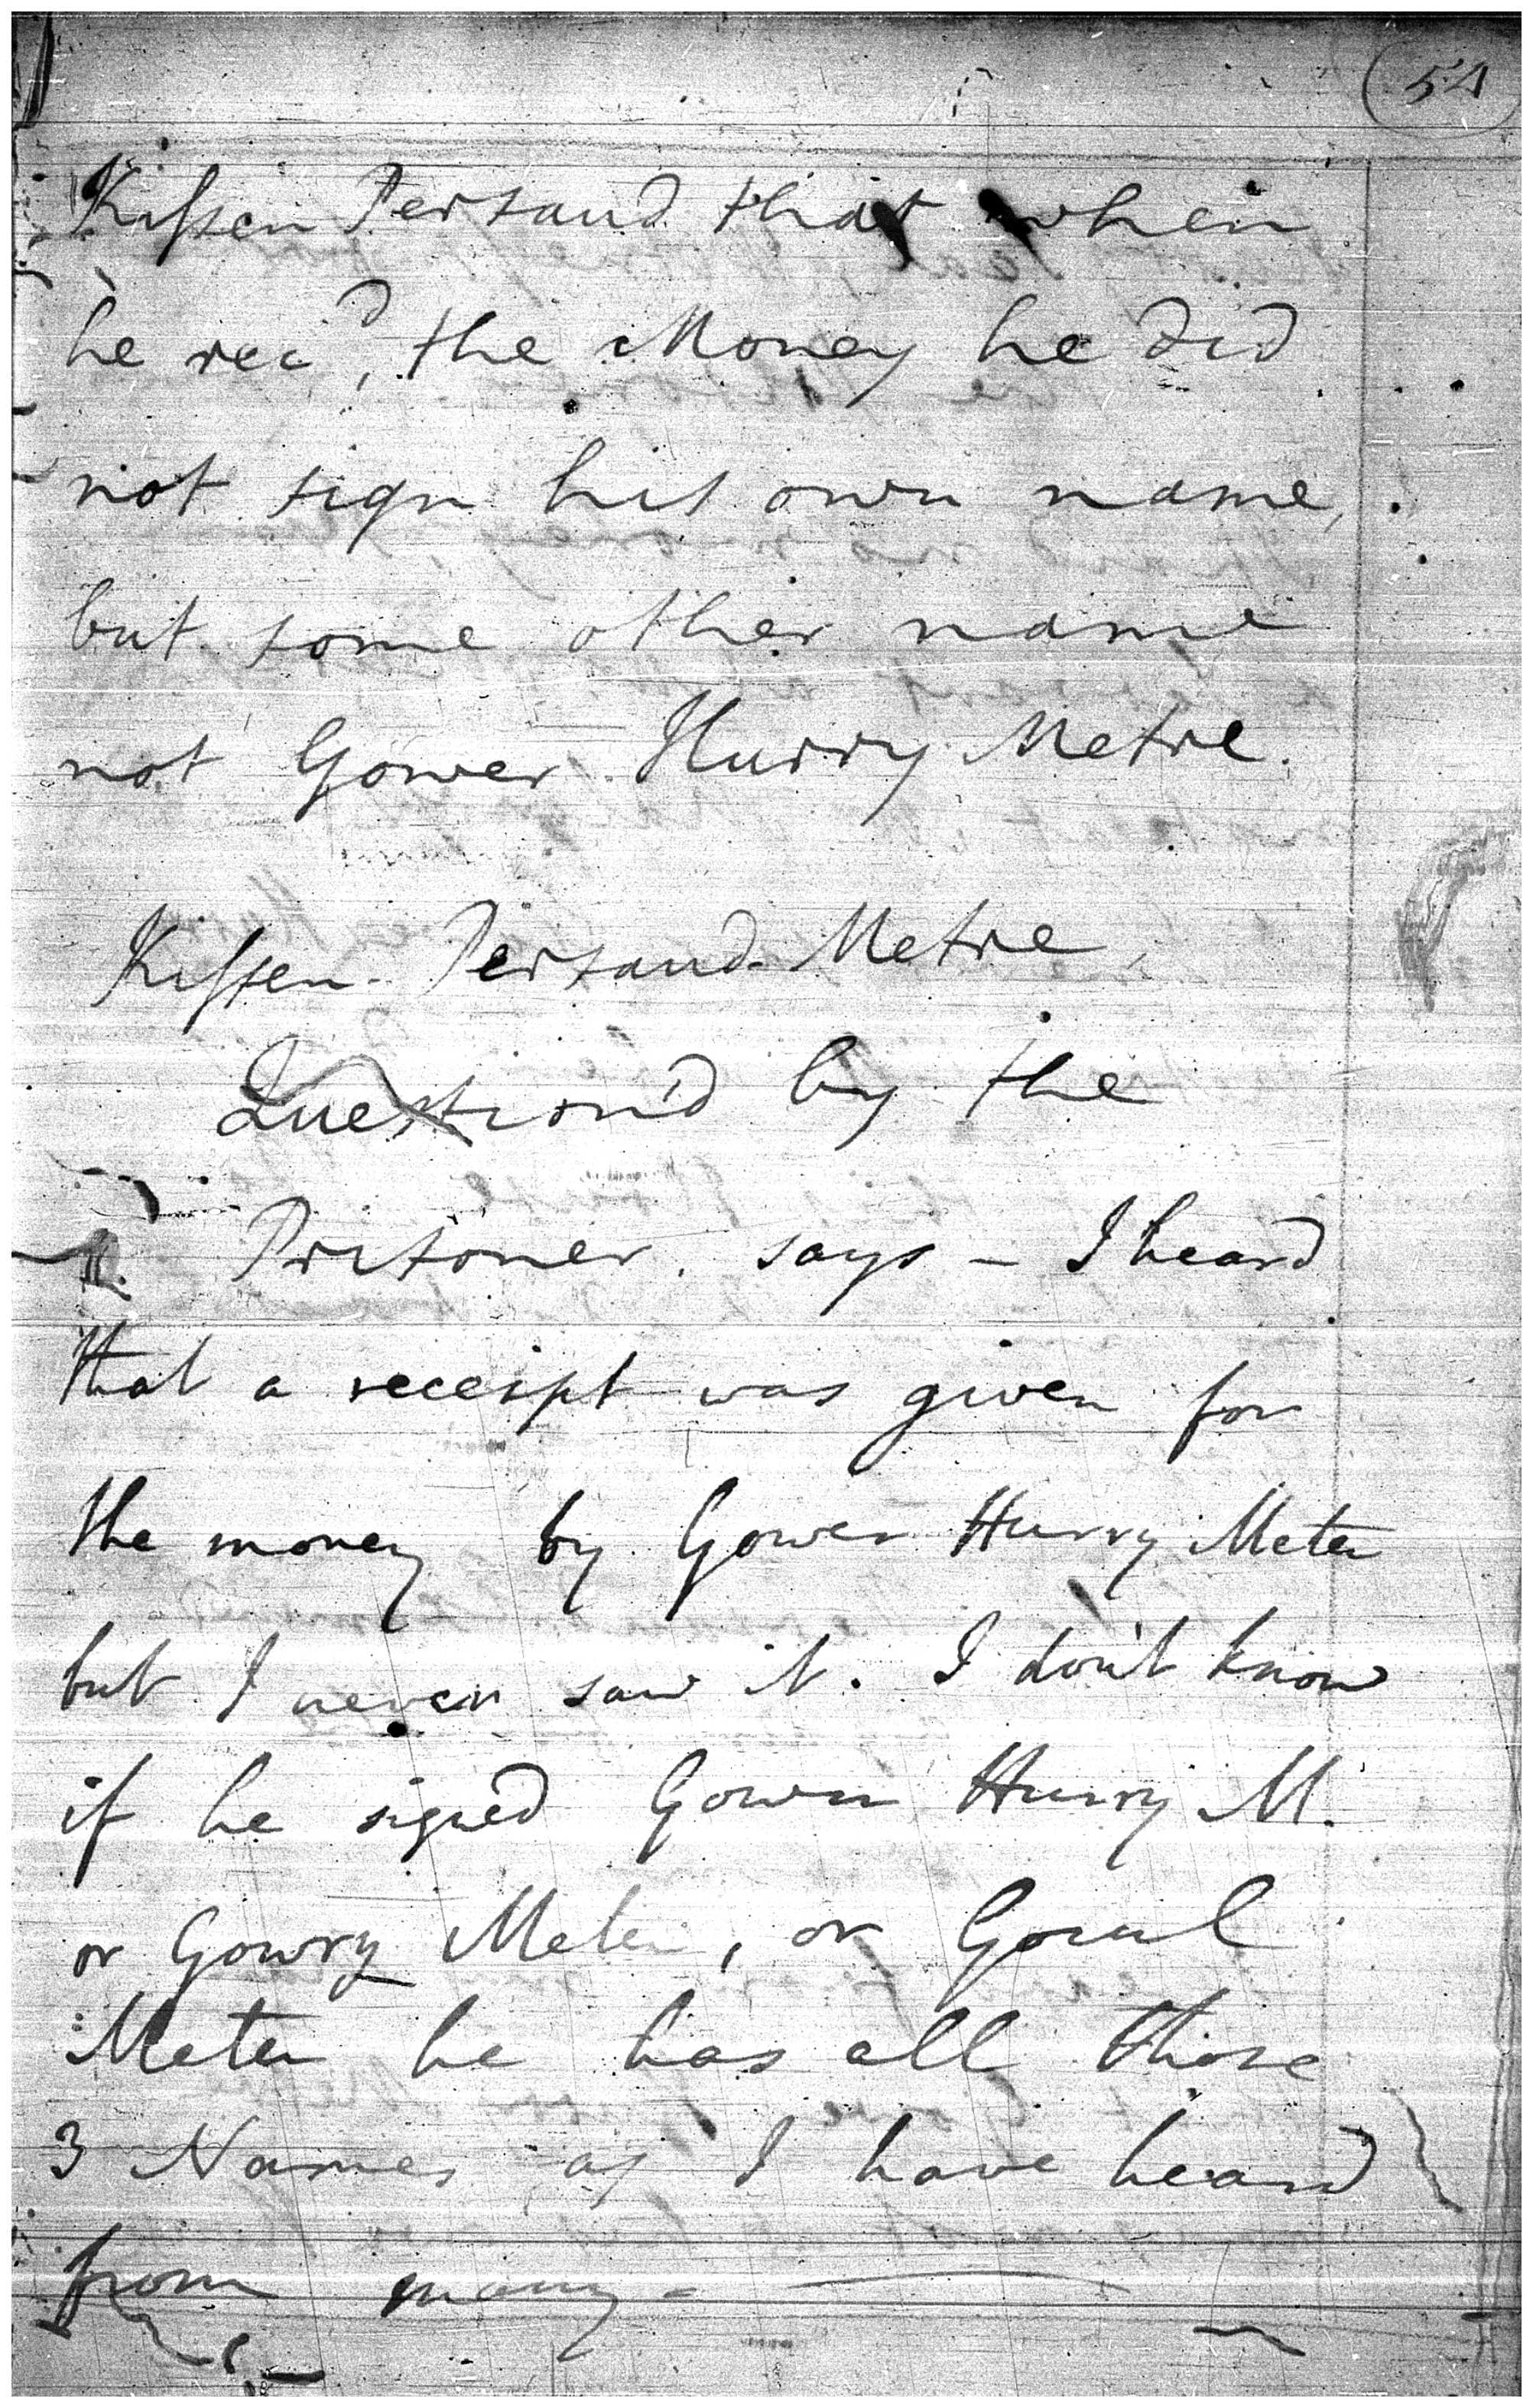 54
Kissen Persaud that when
he rec'd, the Money he did
not sign his own name,
but some other name
not Gower Hurry Metre.
Kissen Persaud Metre,
Question'd by the
Prisoner. says - I heard
that a receipt was given for
the money by Gower Hurry Meter
but I never saw it. I don't know
if he signed Gower Hurry M.
or Gowry Meter, or Gocul
Meter he has all those
3 Names as I have heard
from many -